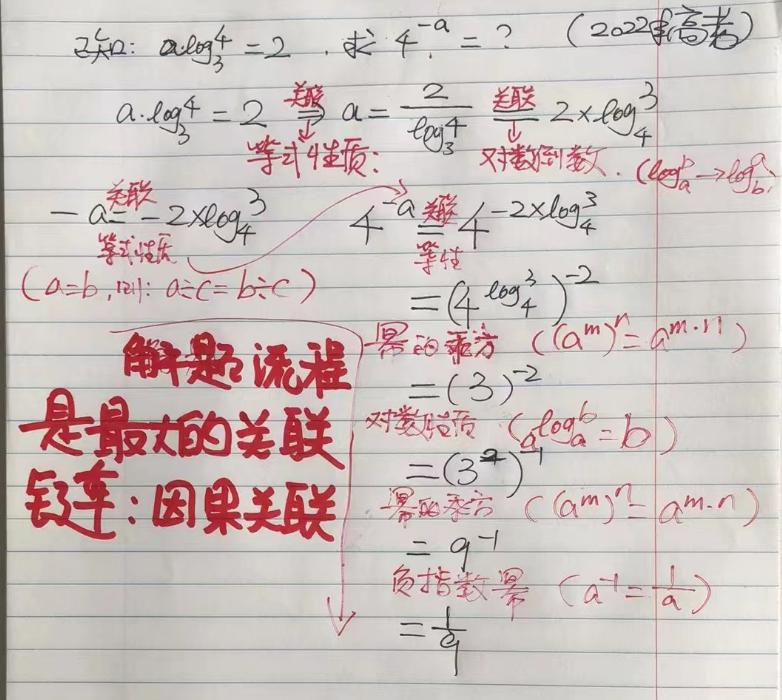 已知: a·log₃4 = 2 . 求 4⁻ᵃ = ? (2022年高考)
a·log₃4 = 2 ⇒ a = 2/log₃4 = 2×log₄3
关联 关联
等式性质: 对数倒数. (logₐb → log_b a)
-a = -2×log₄3
关联
等式性质
(a=b, 则: a÷c = b÷c)
4⁻ᵃ = 4^(-2×log₄3)
关联
等性
= (4^(log₄3))⁻²
幂的乘方 ((aᵐ)ⁿ = a^(m·n))
= (3)⁻²
对数性质 (a^(logₐb) = b)
= (3²)⁻¹
幂的乘方 ((aᵐ)ⁿ = a^(m·n))
= 9⁻¹
负指数幂 (a⁻¹ = 1/a)
= 1/9
解题流程
是最大的关联
链车:因果关联